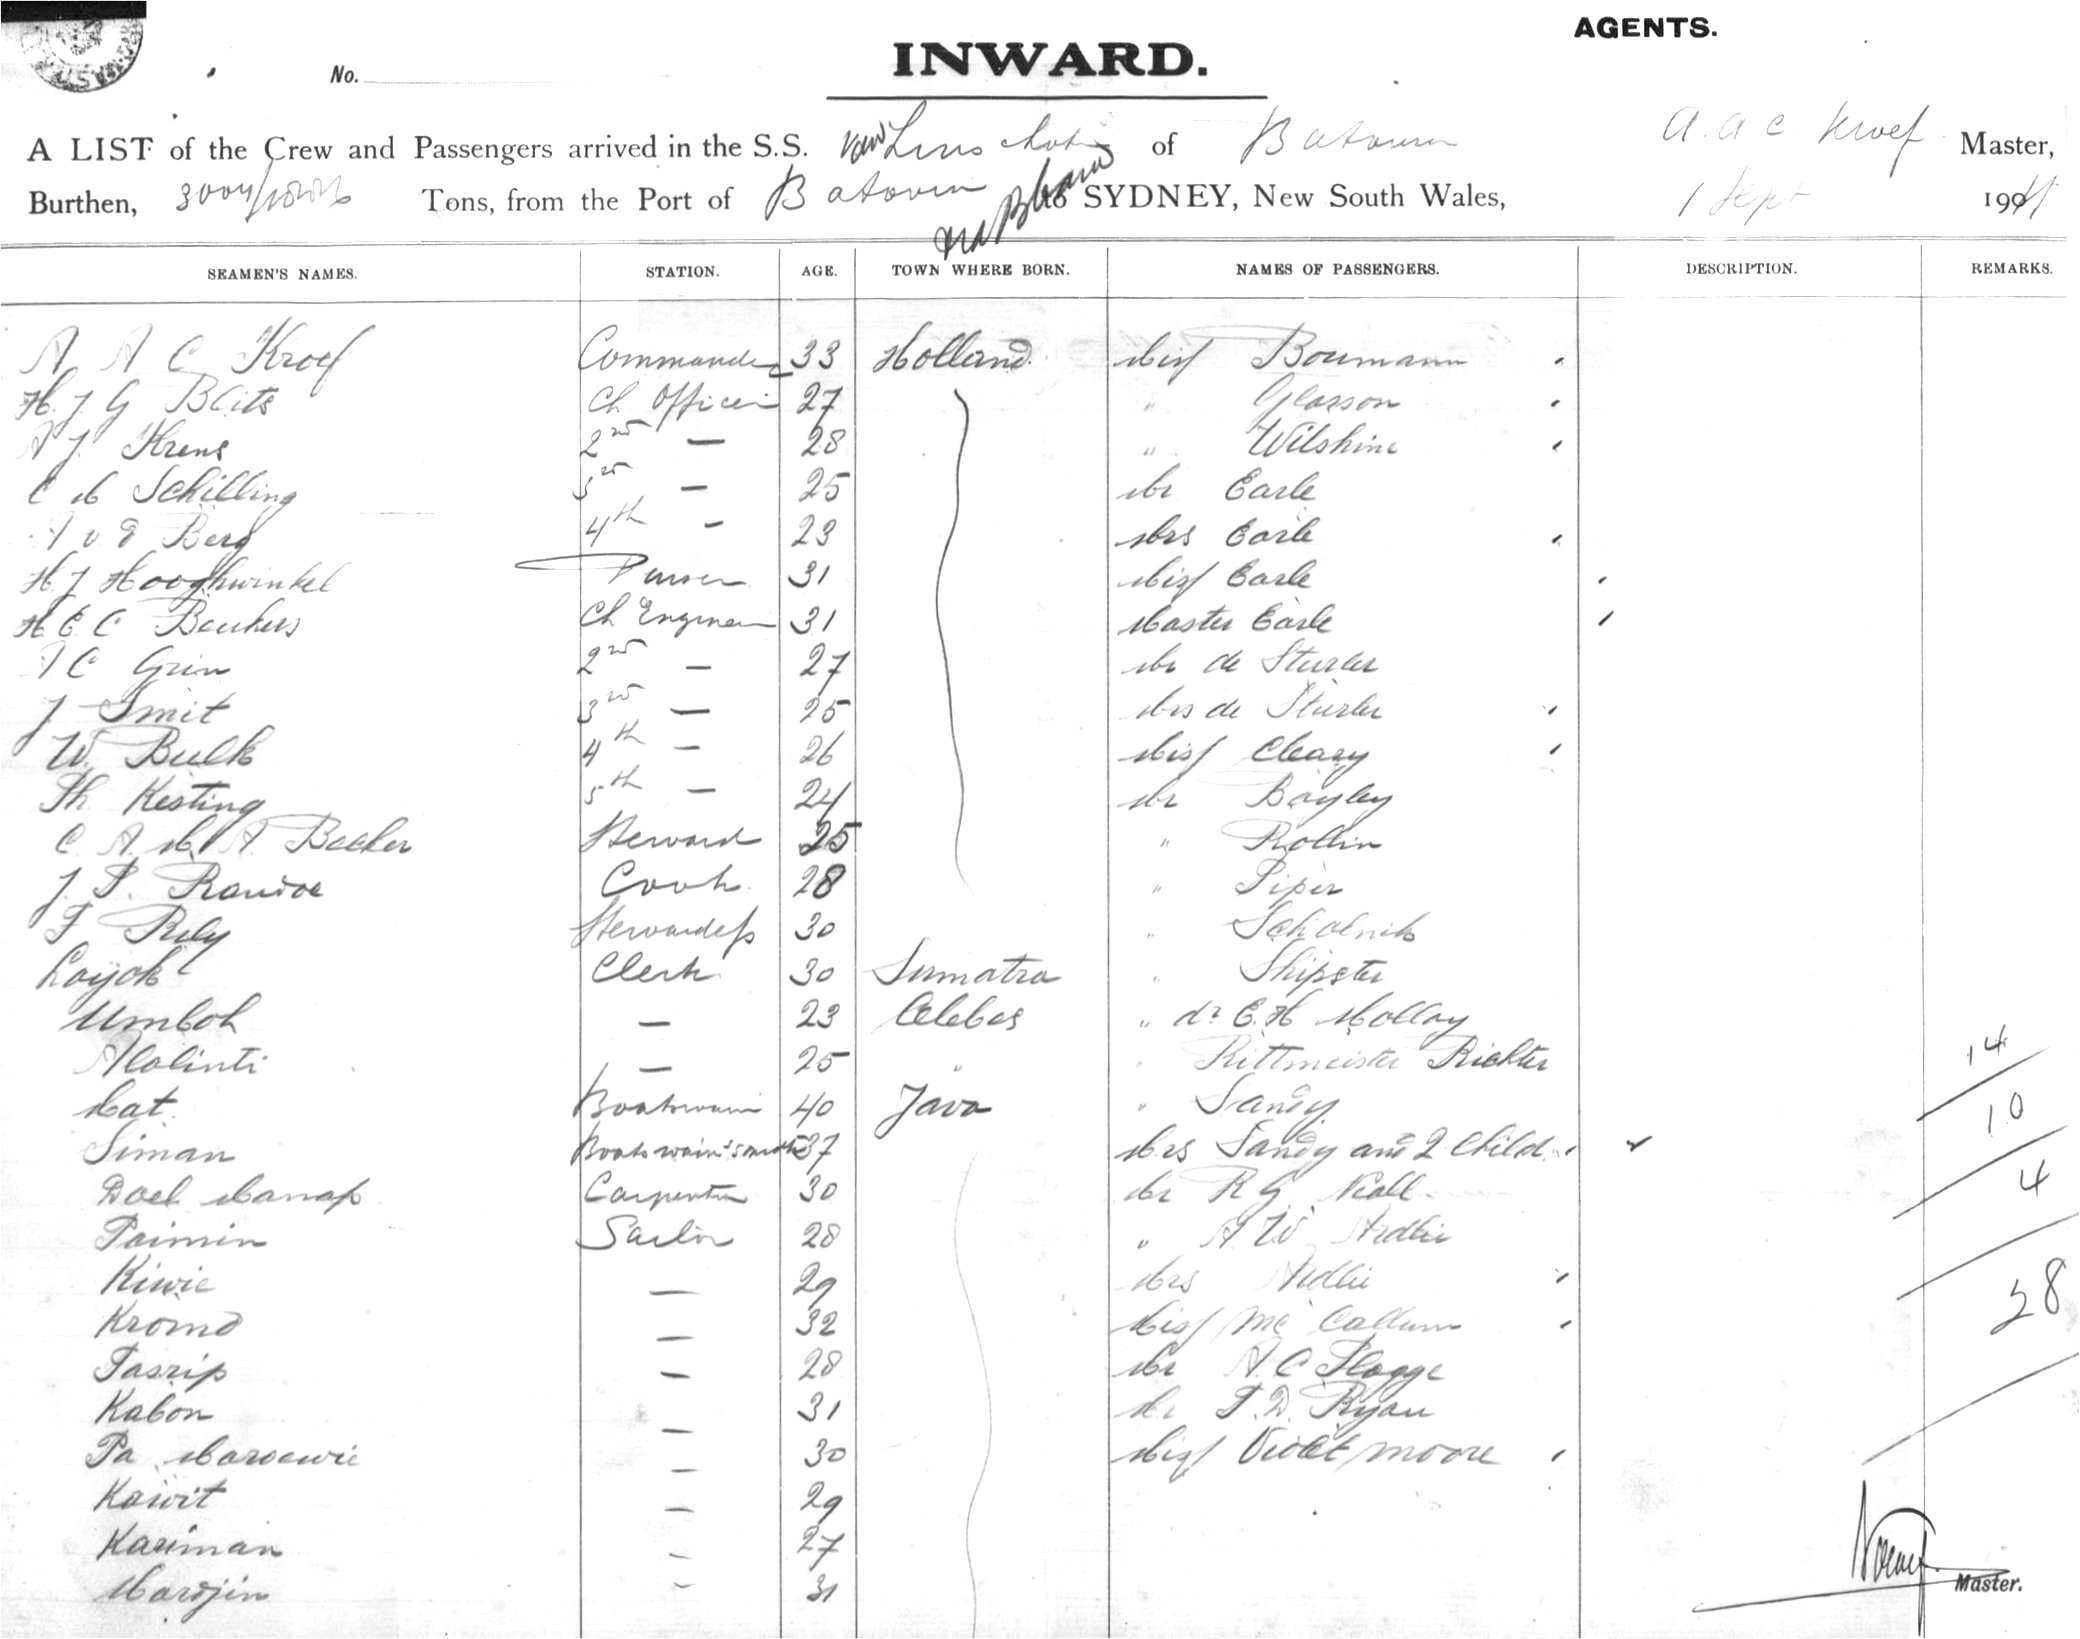 AGENTS.
INWARD.
No.
A LIST of the Crew and Passengers arrived in the S.S. van of Batavia A. A C Kroef Master,
Burthen, Tons, from the Port of Batavia to SYDNEY, New South Wales, 1 Sept 1911
SEAMEN'S NAMES. STATION. AGE. TOWN WHERE BORN. NAMES OF PASSENGERS. DESCRIPTION. REMARKS.
A A C Kroef Commander 33 Holland. Miss Boumann
H. J G Blits Ch Officer 27 " Glasson
A J. Krens 2nd — 28 " Wilshire
C M Schilling 3rd — 25 Mr Earle
A v d Berg 4th - 23 Mrs Earle
H. J Hooghwinkel Purser 31 Miss Earle
H E C Beukers Ch Engineer 31 Master Earle
A C Grin 2nd — 27 Mr de Sturler
J Smit 3rd — 25 Mrs de Sturler
W. Bulk 4th — 26 Miss Cleary
Th Kesting 5th — 24 Mr Bayley
C. A. M. A. Becker Steward 25 " Rollin
J. P. Cook 28 " Piper
F Rely Stewardess 30 "
Loyok Clerk 30 Sumatra " Shipster
Umboh — 23 Celebes " dr E. H Molloy
Alolinti — 25 " " Rittmeister Richter
14
Mat. Boatswain 40 Java " Sandy
10
Siman Boatswain's mate 37 Mrs Sandy and 2 Child.
Doel Manap Carpenter 30 Mr R G Niall
4
Paimin Sailor 28 " A. W. Ardlie
Kiwie — 29 Mrs Ardlie
28
Kromo — 32 Miss Mc Callum
Tasrip — 28 Mr A. C Plagge
Kabon — 31 Mr T. D. Ryan
Pa Maroewie — 30 Miss Violet Moore
Kawit — 29
Kariman — 27
Mardjin — 31
Master.